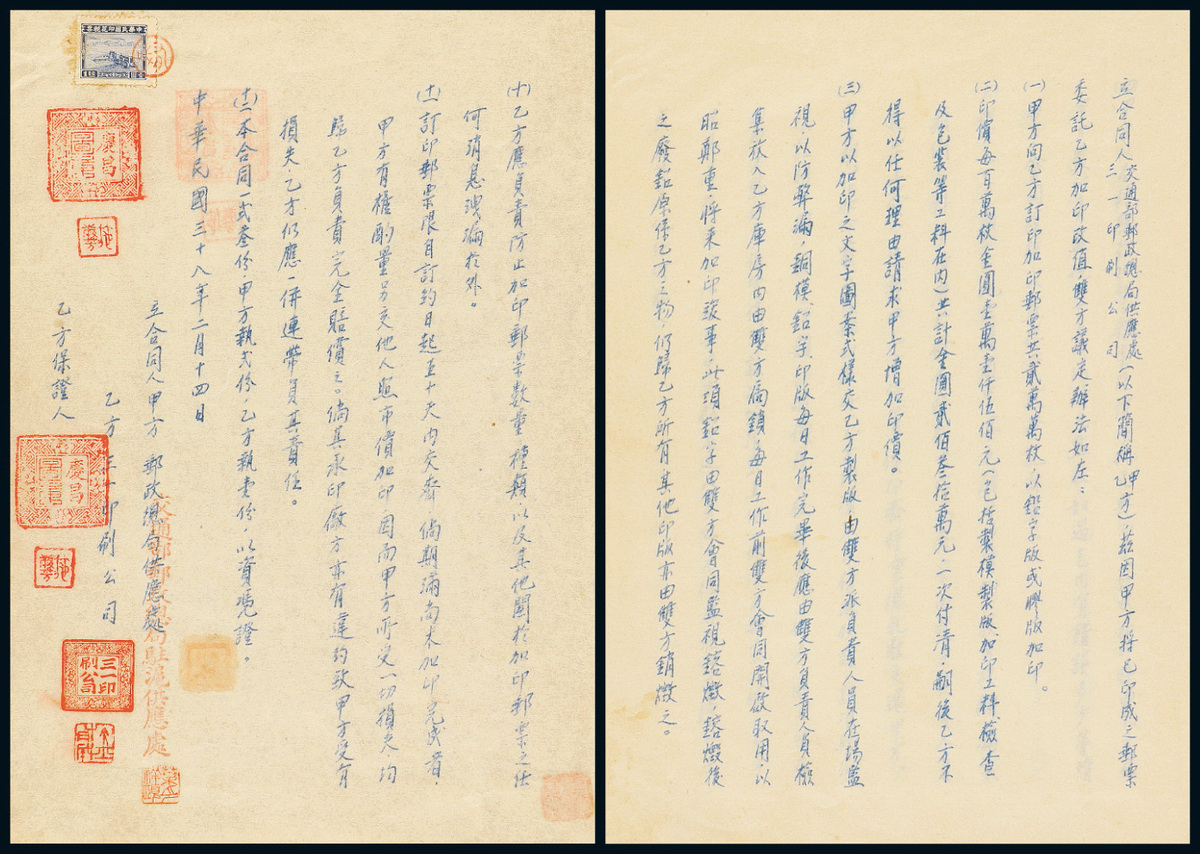 立合同人 交通部郵政總局供應處 三一印刷公司 (以下簡稱甲乙方)茲因甲方將已印成之郵票
委託乙方加印改值,雙方議定辦法如左:
(一)甲方向乙方訂印加印郵票共貳萬萬枚,以鉛字版或膠版加印。
(二)印價每百萬枚金圓壹萬壹仟伍佰元(包括製模製版加印工料,檢查
及包裝等工料在內)共計金圓貳佰叁拾萬元,一次付清,嗣後乙方不
得以任何理由請求甲方增加印價。
(三)甲方以加印之文字圖案式樣交乙方製版,由雙方派負責人員在場監
視以防弊漏,銅模、鉛字、印版每日工作完畢後應由雙方負責人員檢
集放入乙方庫房內由雙方扃鎖,每日工作前雙方會同開啟取用,以
昭鄭重,將來加印竣事,此項鉛字由雙方會同監視鎔燬,鎔燬後
之廢鉛原係乙方之物,仍歸乙方所有其他印版亦由雙方銷燬之。
(十)乙方應負責防止加印郵票數量種類以及其他關於加印郵票之任
何消息洩漏於外。
(十一)訂印郵票限自訂約日起五十天內交齊,倘期滿尚未加印完成者
甲方有權酌量另交他人照市價加印,因而甲方所受一切損失均
歸乙方負責完全賠償之。倘其承印廠方亦有違約致甲方受有
損失,乙方仍應一併連帶負其責任。
(十二)本合同一式叁份,甲方執弍份,乙方執壹份,以資憑證。
中華民國三十八年二月十四日
立合同人甲方 郵政總局供應處
交通部郵政總局駐滬供應處
乙方 三一印刷公司
三一印刷公司
乙方保證人
慶昌
慶昌
中華民國印花稅票